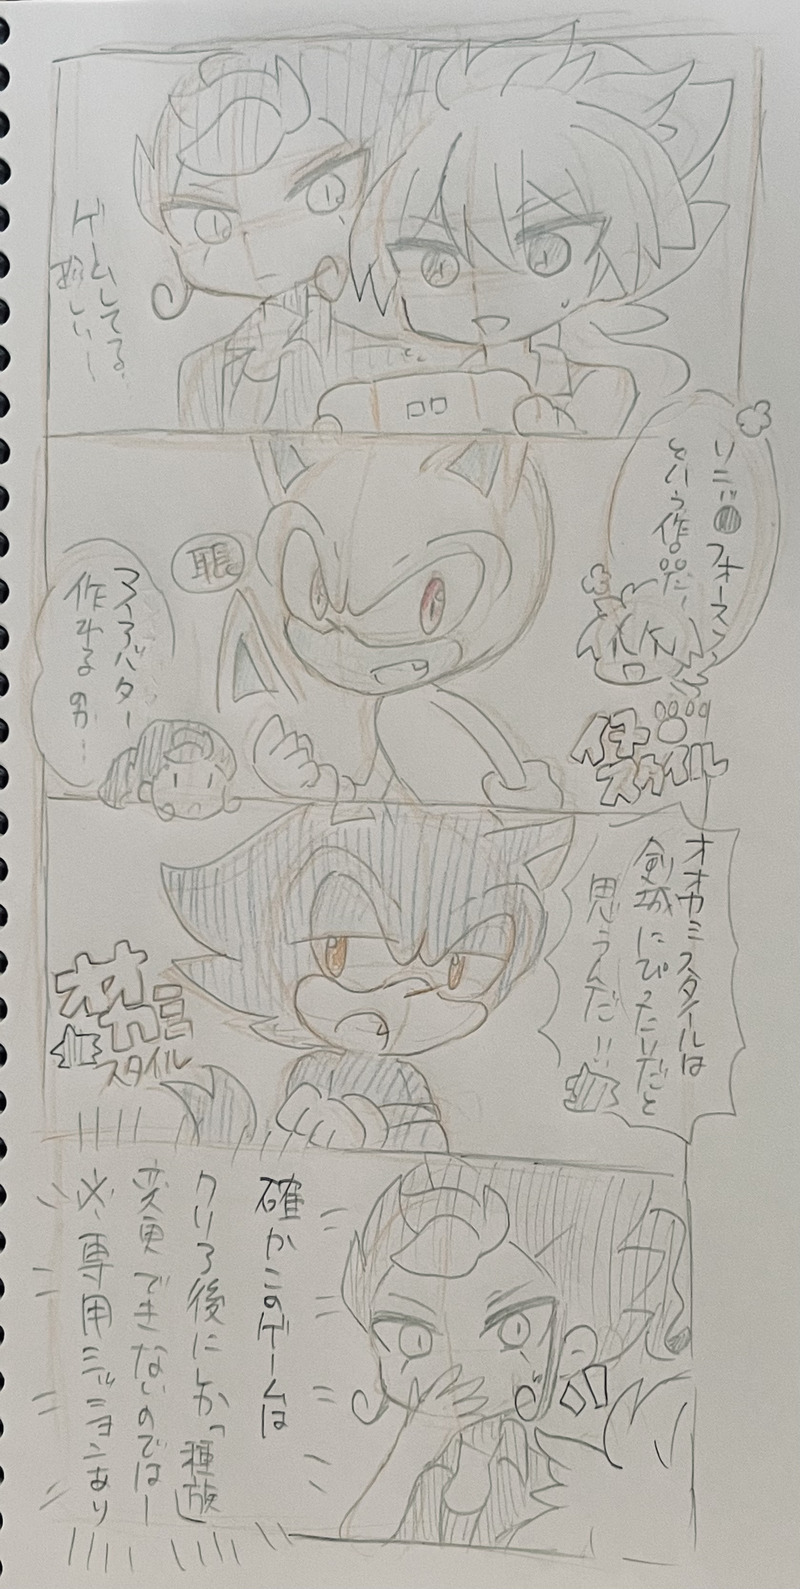 ゲームしてる
珍しい…
ソニ●フォース
という作品だ!
イヌ
スタイル
アバター
作れるのか…
オオカミスタイルは
剣城にぴったりだと
思うんだ!!
オオカミ
スタイル
確かこのゲームは
クリア後にしか「種族」
変更できないのでは…
※専用ミッションあり